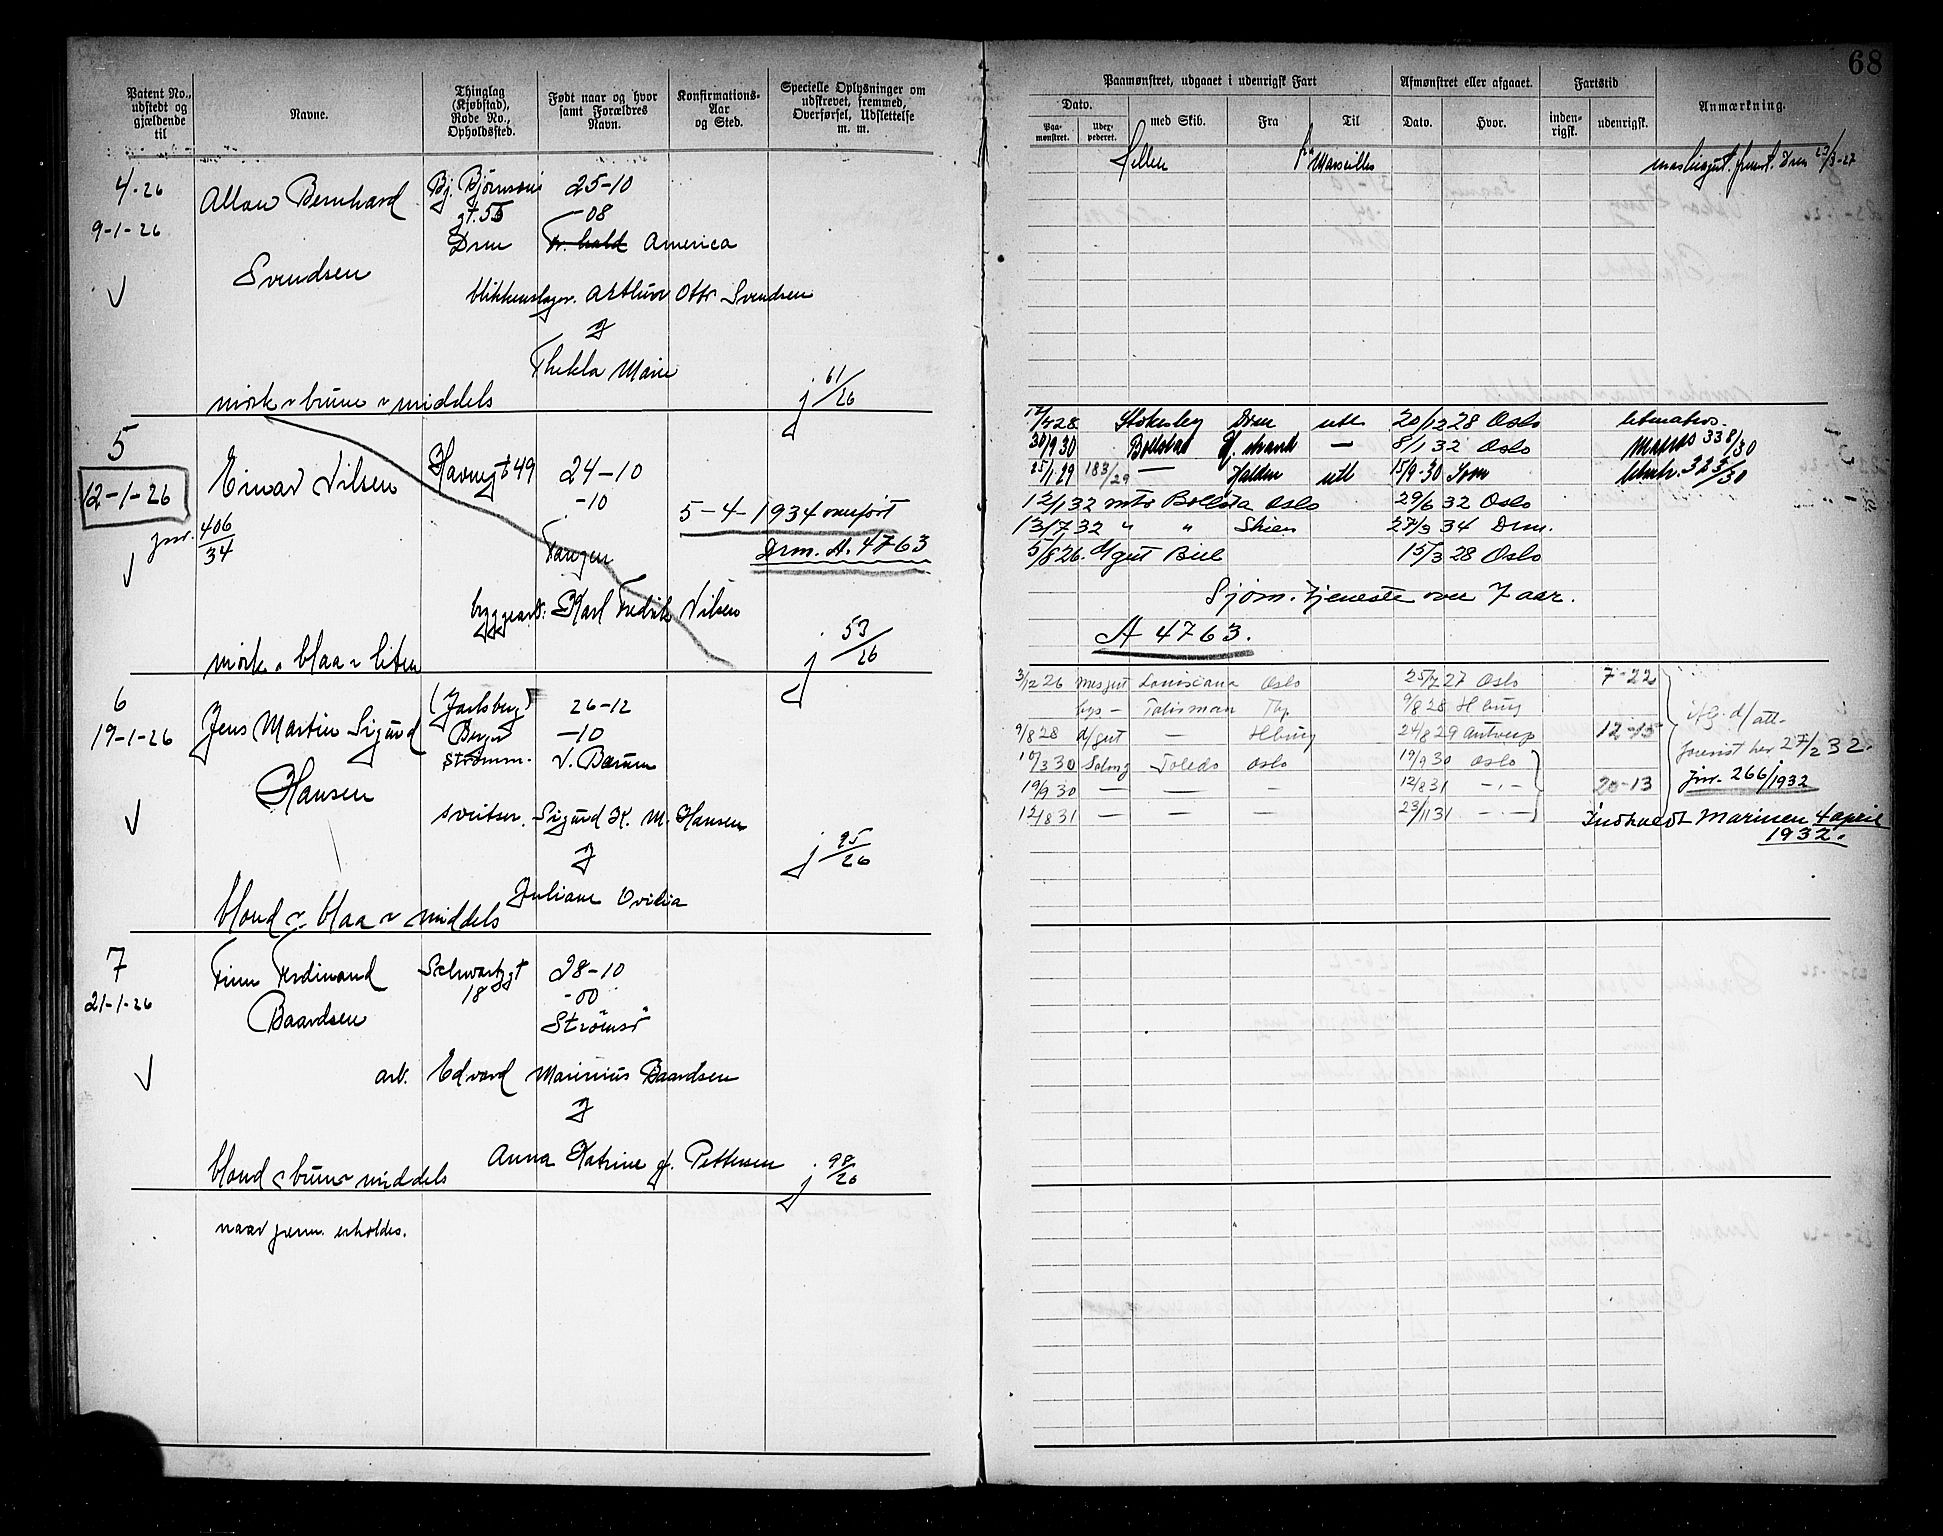 68
Patent No., udstedt og gjældende til
Navne.
Thinglag (Kjøbstad), Rode No., Opholdssted.
Født naar og hvor samt Forældres Navn.
Konfirmations-Aar og Sted.
Specielle Oplysninger om udskrevet, fremmed, Overførsel, Udslettelse m. m.
Paamønstret, udgaaet i udenrigsk Fart
Dato.
Paa-mønstret.
Uderpederet.
med Skib.
Fra
Til
Afmønstret eller afgaaet.
Dato.
Hvor.
Fartstid
inden-rigsk.
udenrigsk.
Anmærkning.
4-26
9-1-26
Allan Bernhard
Svendsen
Bj. Bjørnsons
gt. 55
Drm
25-10
-08
America
blikkenslager. Arthur Otto Svendsen
&
Thekla Marie
mørk ~ brune ~ middels
j 61/26
Hellen
fra Marseilles
5
12-1-26
jnr. 406/34
Einar Nilsen
Havnegt 49
24-10
-10
Tangen
5-4-1934 overført
Drm. A. 4763
byggearb. Karl Fredrik Nilsen
mørk ~ blaa ~ liten
j 53/26
Stokesley Drm utl. 20/12 28 Oslo letmatros.
30/9 30 — 8/1 32 Oslo Matros 338/30
25/1 29 183/29 — Halden utl 15/9-30 323/30
12/1 32 mtr Bollsta Oslo 29/6 32 Oslo
13/7 32 " " Skien 27/3 34 Drm.
5/8 26. d/gut 15/3 28 Oslo
Sjøm. tjeneste over 7 aar.
A 4763.
6
19-1-26
Jens Martin Sigurd
Hansen
(Jarlsberg)
Berger
Strømm.
26-12
-10
V. Bærum
sveitser. Sigurd K. M. Hansen
&
Juliane Ovidia
blond ~ blaa ~ middels
j 95/26
3/12 26 mesgut Louisiana Oslo 25/7 27 Oslo 7-22
bys — Talisman Tbg 9/8 28 Hburg
9/8 28 d/gut — Hburg 24/8 29 Antwerp 12-15
10/3 30 Salong Toledo Oslo 19/9 30 Oslo
19/9 30 — — — 12/8 31 -.- 20-13
12/8 31 — — — 23/11 31 -.-
ifg. d/ att.
forevist her 27/2 32.
Jnr. 266/1932
Indkaldt Marinen 4 april
1932.
7
21-1-26
Finn Ferdinand
Baardsen
Schwartzgt
18
28-10
-00
Strømsø
arb. Edvard Marinius Baardsen
&
Anna Katrine f. Pettersen
blond ~ brune ~ middels
j 98/26
naar penn. erholdes.